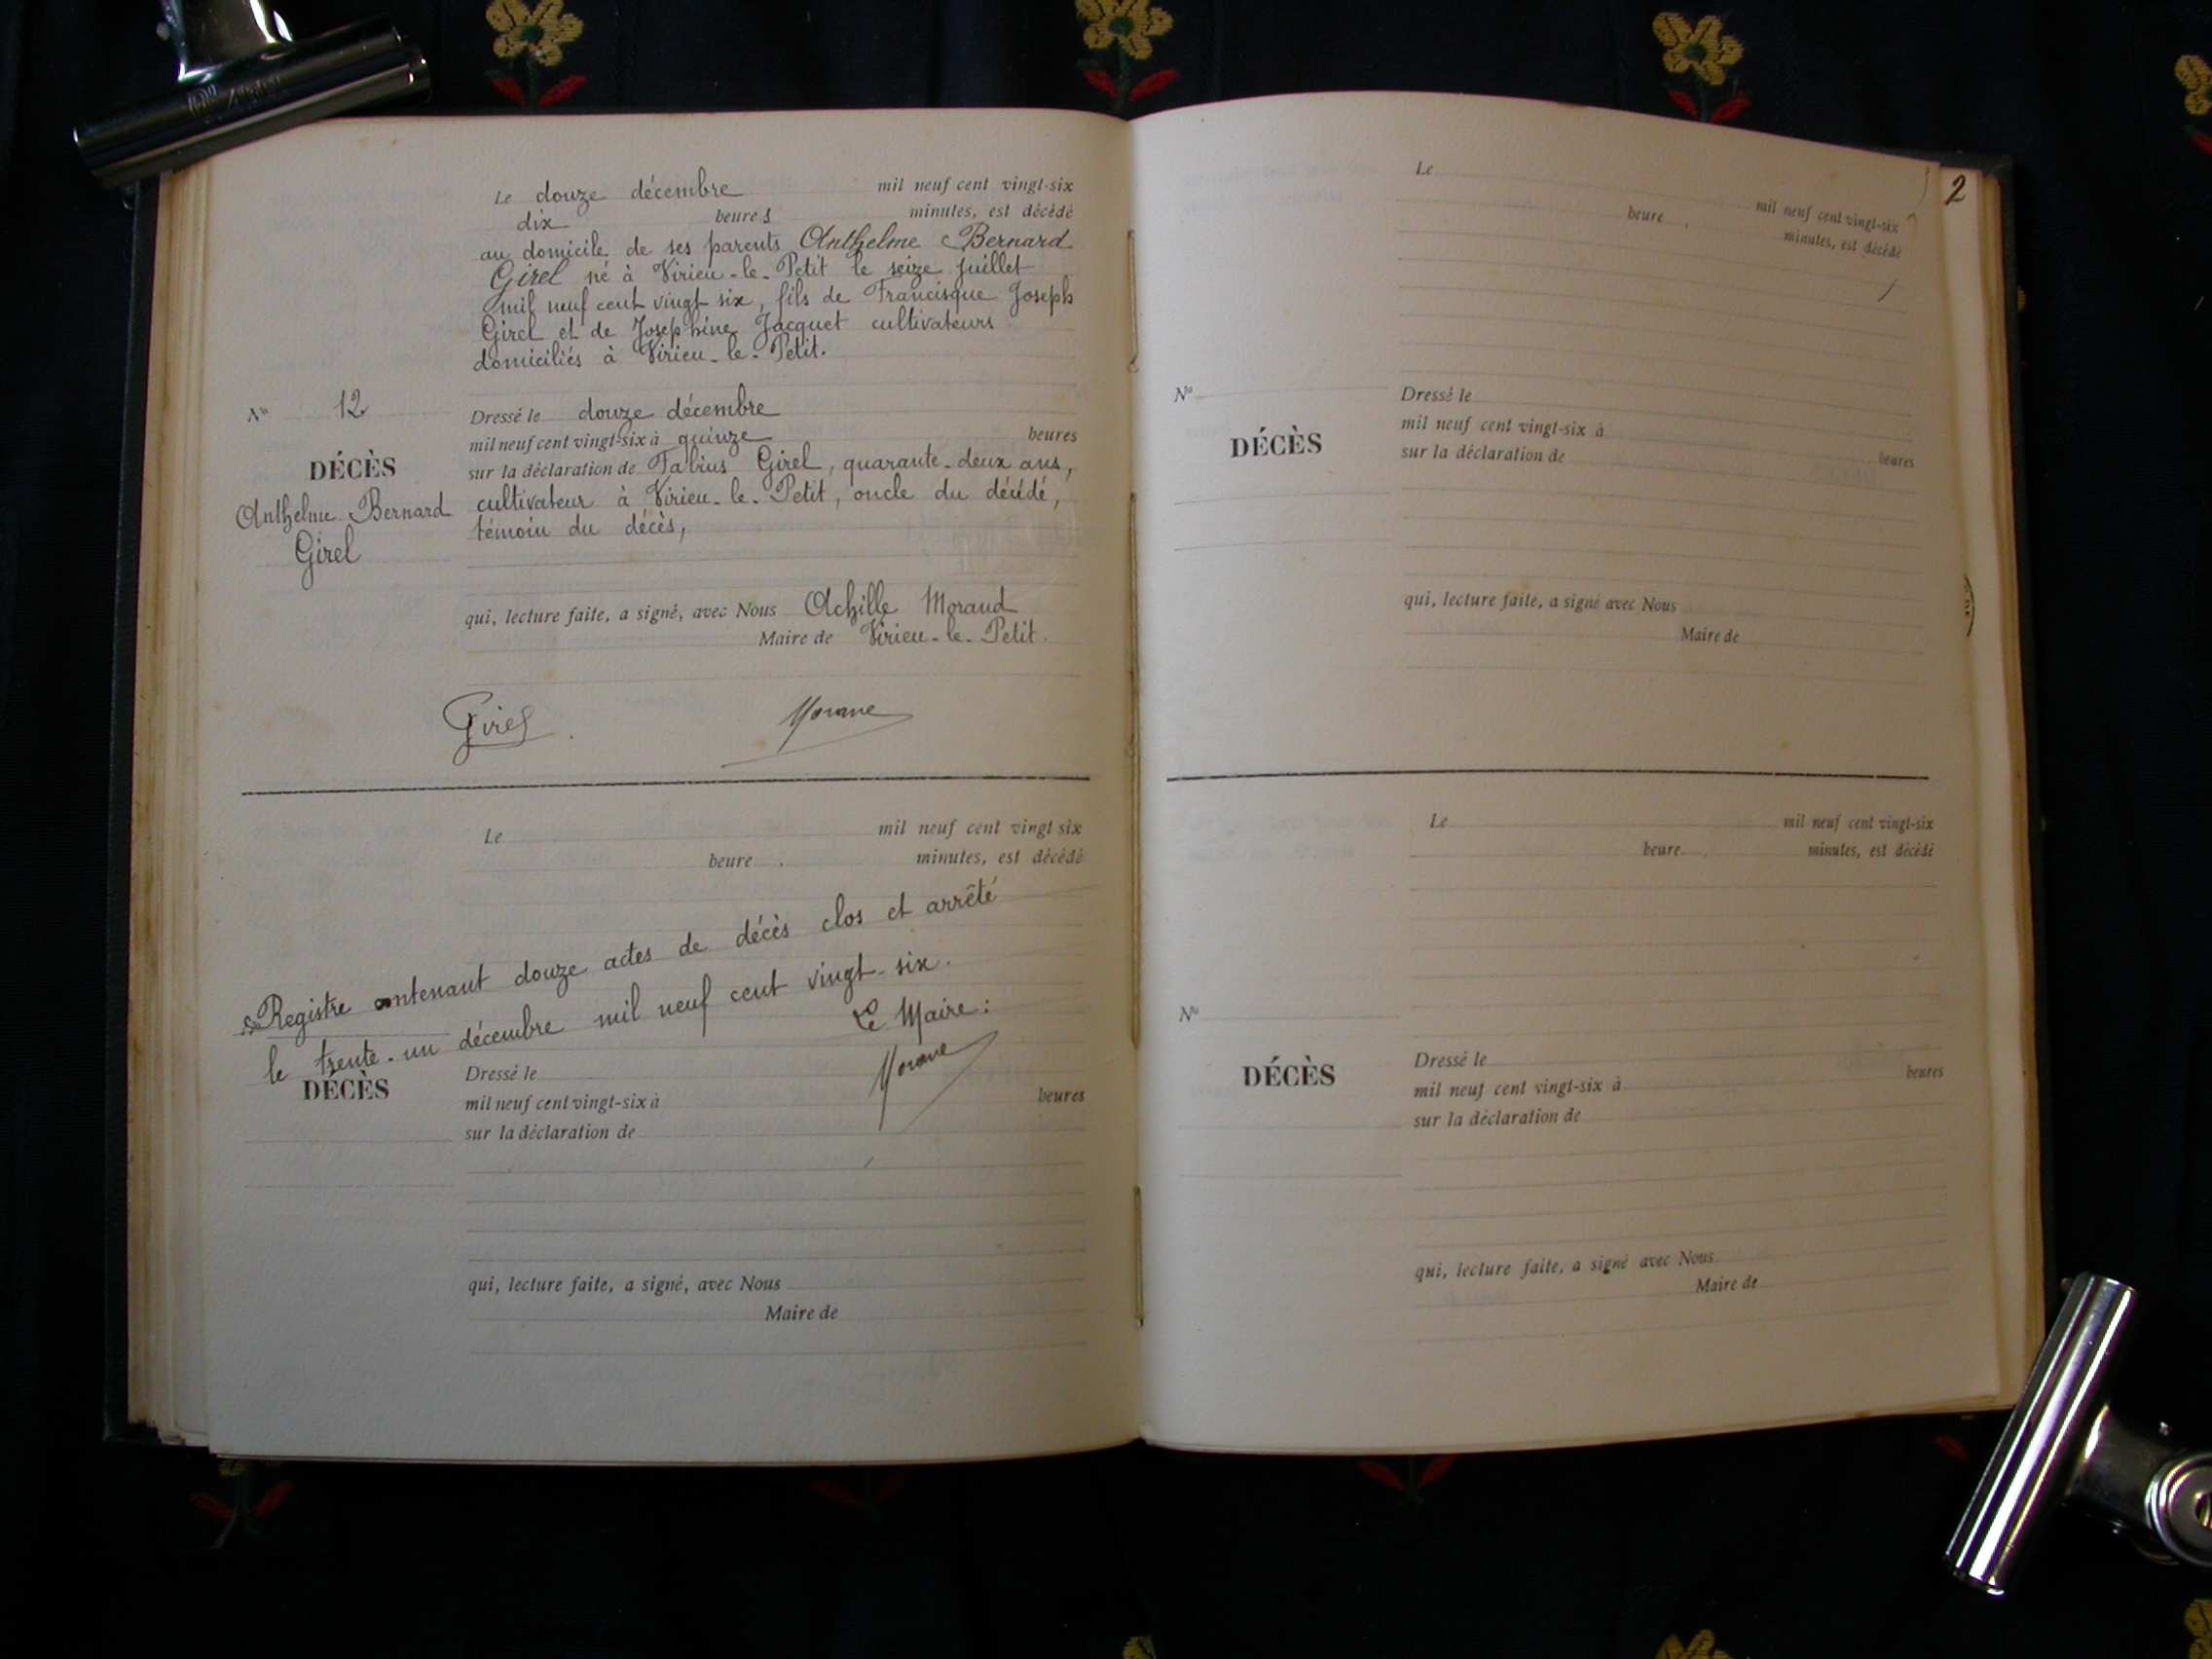 Le douze décembre mil neuf cent vingt-six
dix heures minutes, est décédé
au domicile de ses parents Anthelme Bernard
Girel né à Virieu-le-Petit le seize juillet
mil neuf cent vingt six, fils de Francisque Joseph
Girel et de Joséphine Jacquet cultivateurs
domiciliés à Virieu-le-Petit.
No 12
DÉCÈS
Anthelme Bernard
Girel
Dressé le douze décembre
mil neuf cent vingt-six à quinze heures
sur la déclaration de Fabius Girel, quarante-deux ans,
cultivateur à Virieu-le-Petit, oncle du décédé,
témoin du décès,
qui, lecture faite, a signé, avec Nous Achille Morand
Maire de Virieu-le-Petit.
Girel
Le mil neuf cent vingt six
heure minutes, est décédé
Registre contenant douze actes de décès clos et arrêté
le trente-un décembre mil neuf cent vingt-six.
Le Maire:
DÉCÈS
Dressé le
mil neuf cent vingt-six à heures
sur la déclaration de
qui, lecture faite, a signé, avec Nous
Maire de
2
Le mil neuf cent vingt-six
heure minutes, est décédé
No
DÉCÈS
Dressé le
mil neuf cent vingt-six à heures
sur la déclaration de
qui, lecture faite, a signé avec Nous
Maire de
Le mil neuf cent vingt-six
heure minutes, est décédé
No
DÉCÈS
Dressé le
mil neuf cent vingt-six à heures
sur la déclaration de
qui, lecture faite, a signé avec Nous
Maire de